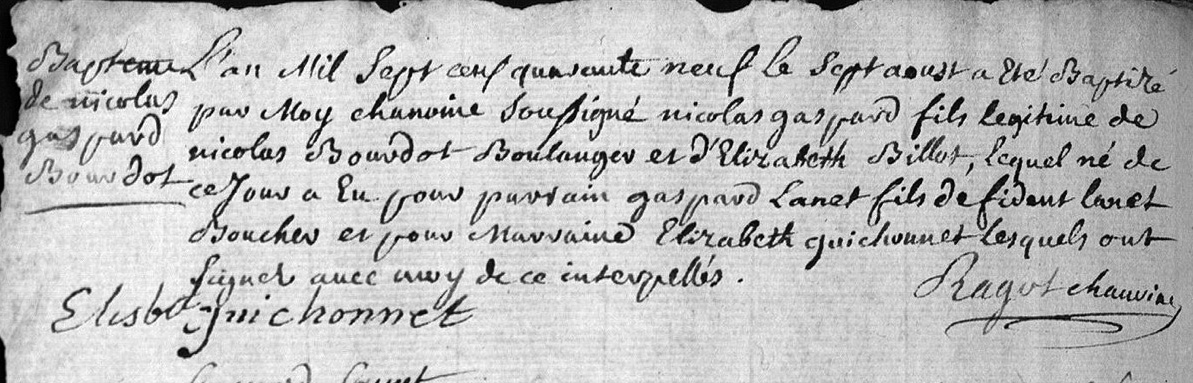 Bapteme
de nicolas
gaspard
Bourdot
L'an Mil Sept cens quarante neuf le Sept aoust a Eté Baptizé
par Moy chanoine Soussigné nicolas gaspard fils legitime de
nicolas Bourdot Boulanger et d'Elizabeth Billot, lequel né de
ce Jour a Eu pour parrain gaspard Lanet fils de fident lanet
Boucher et pour Marraine Elizabeth guichonnet lesquels ont
signer avec moy de ce interpellés.
Ragot chanoine
Elisbet guichonnet